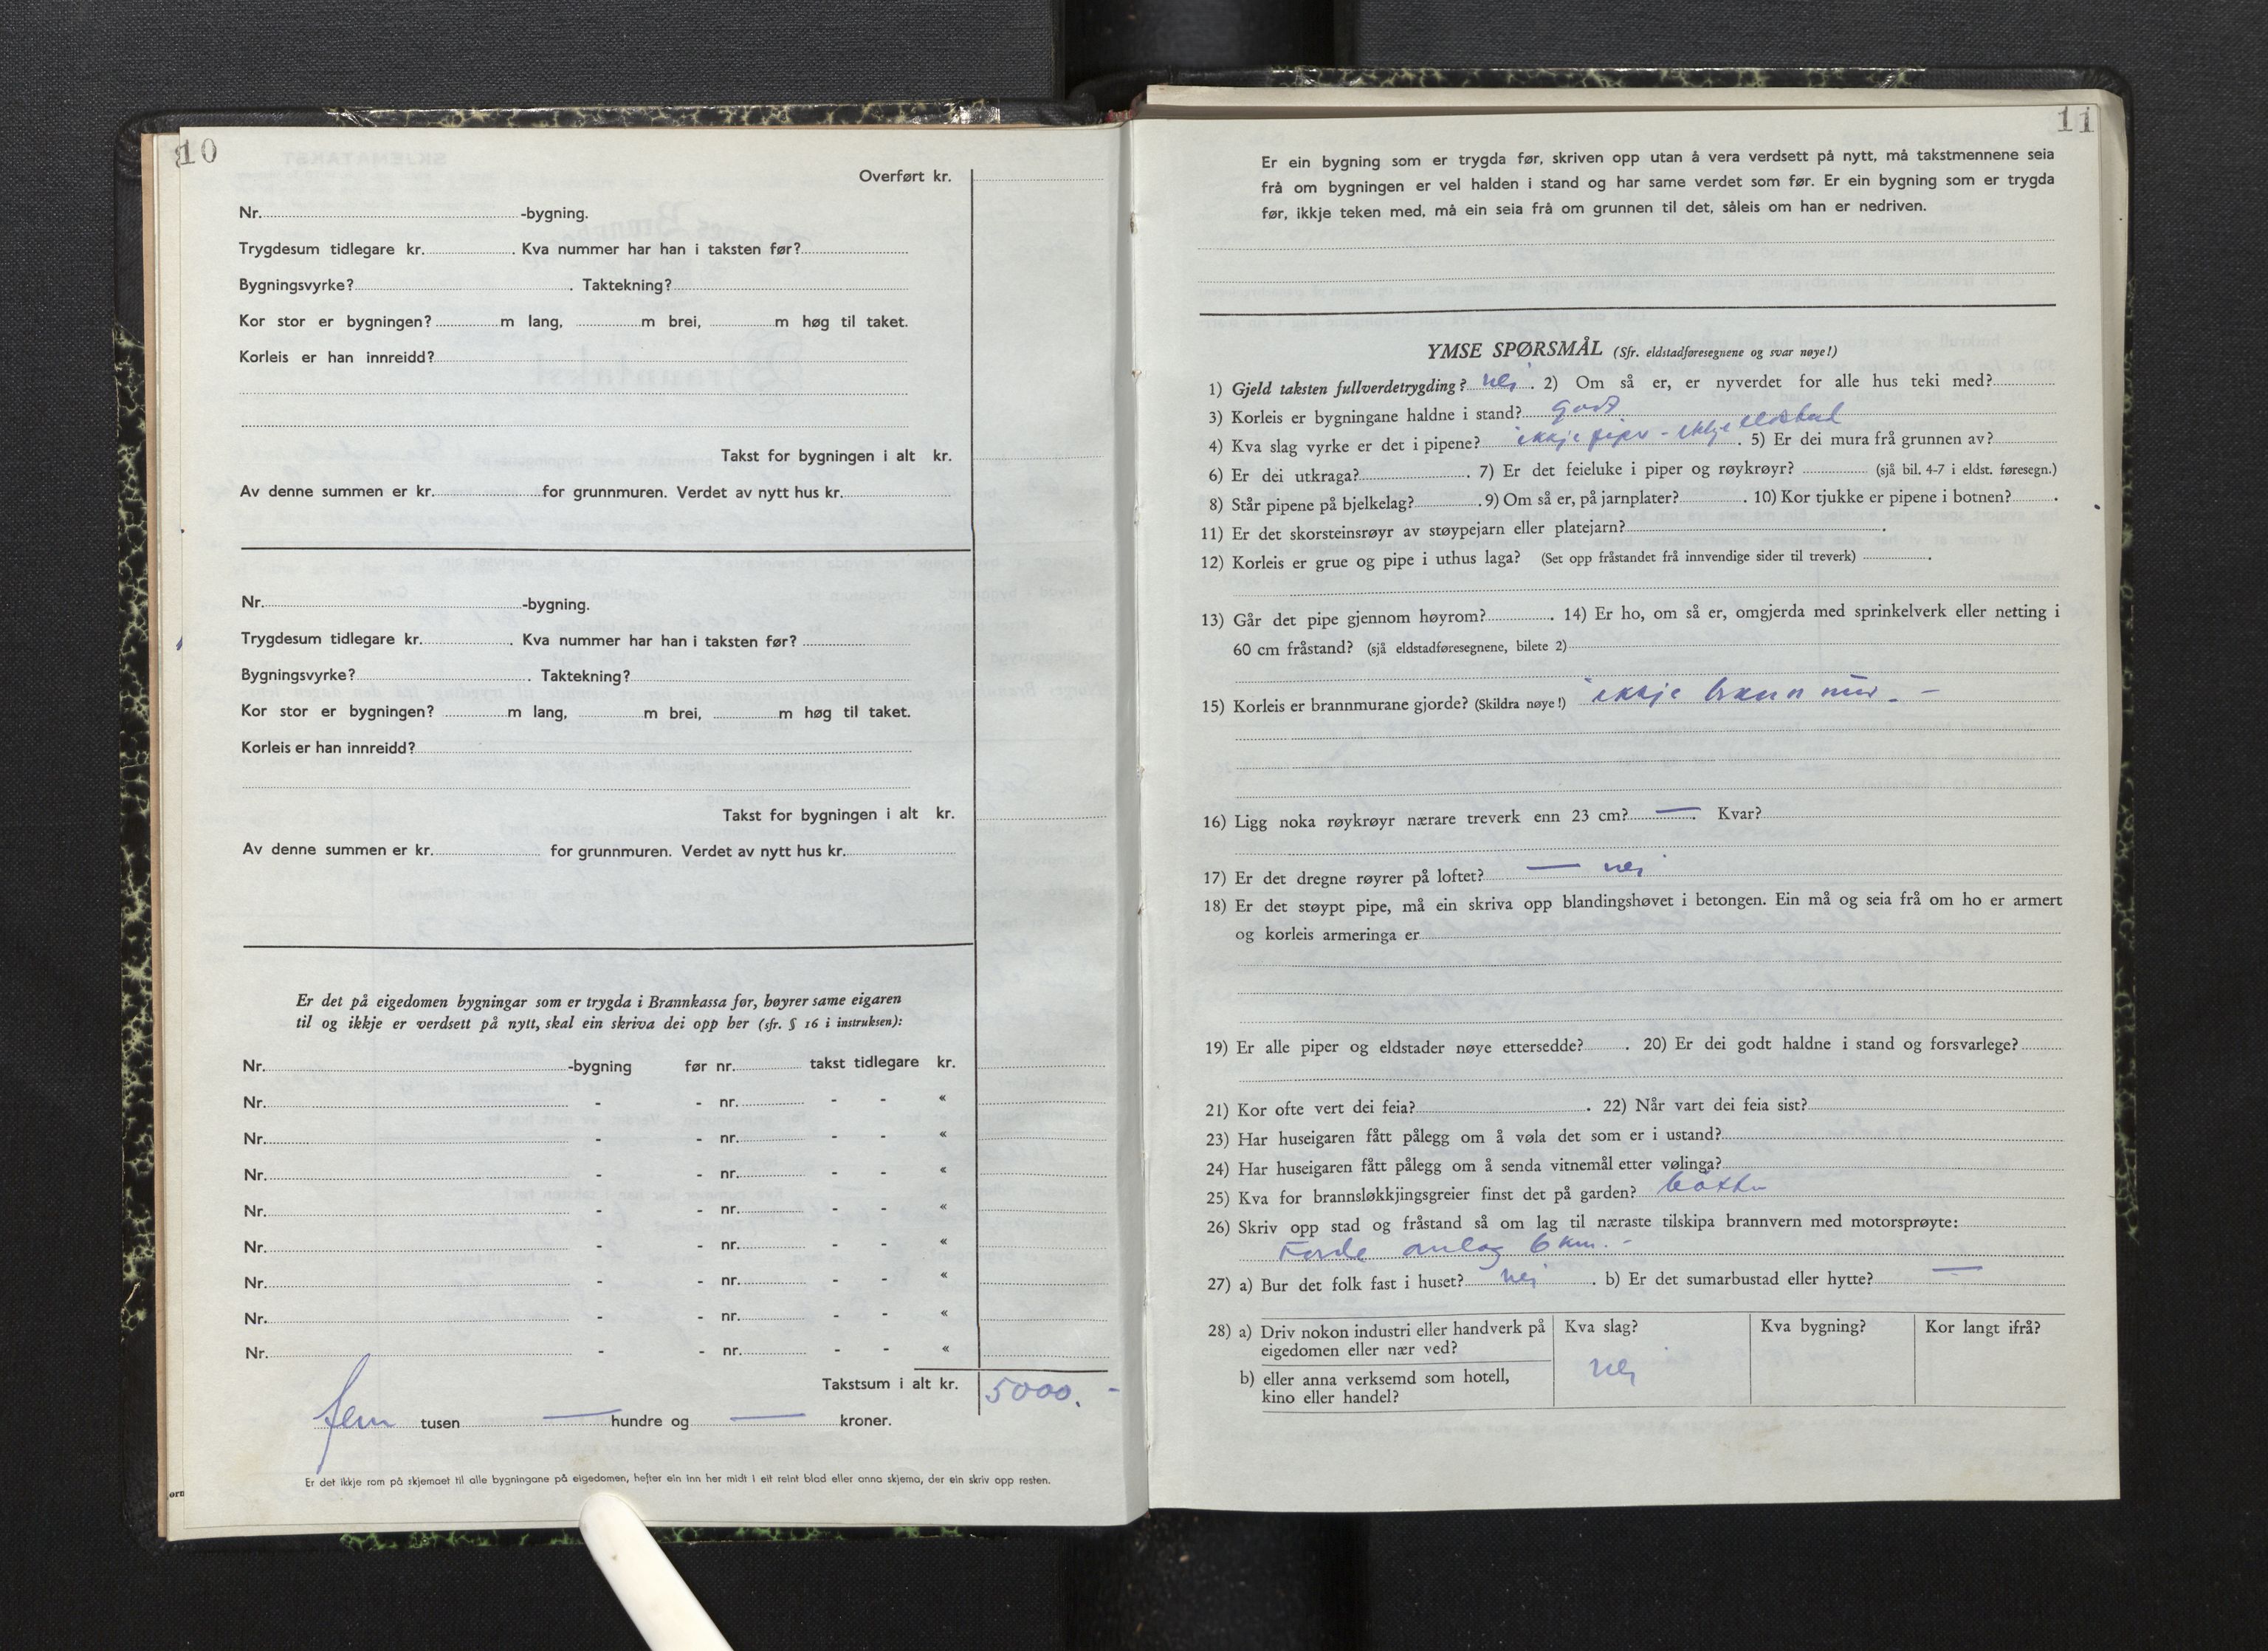 10
Overført kr.
Nr. -bygning.
Trygdesum tidlegare kr. . Kva nummer har han i taksten før?
Bygningsvyrke? . Taktekning?
Kor stor er bygningen? m lang, m brei, m høg til taket.
Korleis er han innreidd?
Takst for bygningen i alt kr.
Av denne summen er kr. for grunnmuren. Verdet av nytt hus kr.
Nr. -bygning.
Trygdesum tidlegare kr. . Kva nummer har han i taksten før?
Bygningsvyrke? . Taktekning?
Kor stor er bygningen? m lang, m brei, m høg til taket.
Korleis er han innreidd?
Takst for bygningen i alt kr.
Av denne summen er kr. for grunnmuren. Verdet av nytt hus kr.
Er det på eigedomen bygningar som er trygda i Brannkassa før, høyrer same eigaren
til og ikkje er verdsett på nytt, skal ein skriva dei opp her (sfr. § 16 i instruksen):
Nr. -bygning før nr. takst tidlegare kr.
Nr. - - nr. - - «
Nr. - - nr. - - «
Nr. - - nr. - - «
Nr. - - nr. - - «
Nr. - - nr. - - «
Nr. - - nr. - - «
Nr. - - nr. - - «
Nr. - - nr. - - «
Takstsum i alt kr. 5000. -
fem tusen — hundre og — kroner.
Er det ikkje rom på skjemaet til alle bygningane på eigedomen, hefter ein inn her midt i eit reint blad eller anna skjema, der ein skriv opp resten.
ørn
11
Er ein bygning som er trygda før, skriven opp utan å vera verdsett på nytt, må takstmennene seia
frå om bygningen er vel halden i stand og har same verdet som før. Er ein bygning som er trygda
før, ikkje teken med, må ein seia frå om grunnen til det, såleis om han er nedriven.
YMSE SPØRSMÅL (Sfr. eldstadføresegnene og svar nøye!)
1) Gjeld taksten fullverdetrygding? nei . 2) Om så er, er nyverdet for alle hus teki med?
3) Korleis er bygningane haldne i stand? godt
4) Kva slag vyrke er det i pipene? ikkje piper - ikkje eldstad . 5) Er dei mura frå grunnen av?
6) Er dei utkraga? . 7) Er det feieluke i piper og røykrøyr? (sjå bil. 4-7 i eldst. føresegn.)
8) Står pipene på bjelkelag? . 9) Om så er, på jarnplater? . 10) Kor tjukke er pipene i botnen? .
11) Er det skorsteinsrøyr av støypejarn eller platejarn? .
12) Korleis er grue og pipe i uthus laga? (Set opp fråstandet frå innvendige sider til treverk) .
13) Går det pipe gjennom høyrom? . 14) Er ho, om så er, omgjerda med sprinkelverk eller netting i
60 cm fråstand? (sjå eldstadføresegnene, bilete 2)
15) Korleis er brannmurane gjorde? (Skildra nøye!) ikkje brann mur. -
16) Ligg noka røykrøyr nærare treverk enn 23 cm? — . Kvar?
17) Er det dregne røyrer på loftet? — nei
18) Er det støypt pipe, må ein skriva opp blandingshøvet i betongen. Ein må og seia frå om ho er armert
og korleis armeringa er
19) Er alle piper og eldstader nøye ettersedde? . 20) Er dei godt haldne i stand og forsvarlege?
21) Kor ofte vert dei feia? . 22) Når vart dei feia sist?
23) Har huseigaren fått pålegg om å vøla det som er i ustand?
24) Har huseigaren fått pålegg om å senda vitnemål etter vølinga?
25) Kva for brannsløkkjingsgreier finst det på garden?
26) Skriv opp stad og fråstand så om lag til næraste tilskipa brannvern med motorsprøyte:
Førde anlag 6 km. -
27) a) Bur det folk fast i huset? nei . b) Er det sumarbustad eller hytte? —
28) a) Driv nokon industri eller handverk på eigedomen eller nær ved? Kva slag? Kva bygning? Kor langt ifrå?
b) eller anna verksemd som hotell, kino eller handel? nei